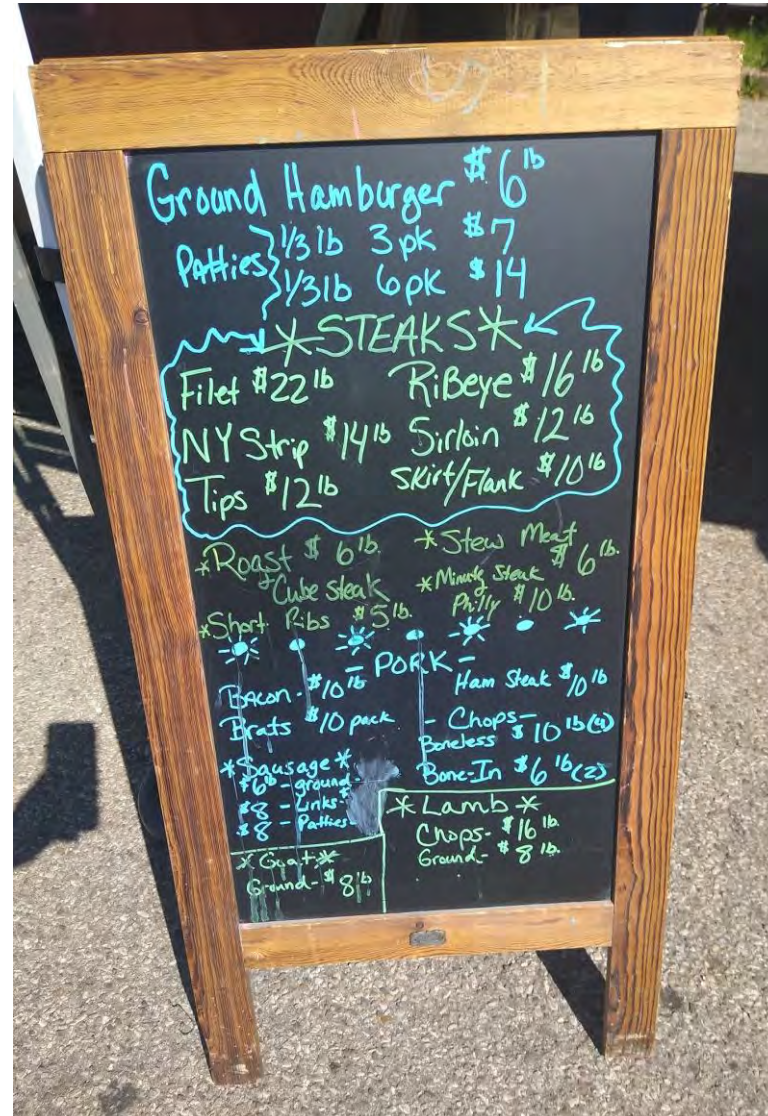 Ground Hamburger $6 lb
Patties 1/3 lb 3 pk $7
1/3 lb 6 pk $14
*STEAKS*
Filet $22 lb RiBeye $16 lb
NY Strip $14 lb Sirloin $12 lb
Tips $12 lb Skirt/Flank $10 lb
*Roast $6 lb. *Stew Meat $6 lb.
+ Cube Steak *Minute Steak
Philly $10 lb.
*Short Ribs $5 lb.
- PORK -
Bacon - $10 lb Ham Steak $10 lb
Brats $10 pack - Chops -
Boneless $10 lb (4)
*Sausage* Bone-In $6 lb (2)
$6 lb ground -
$8 - Links -
$8 - Patties -
*Lamb*
Chops - $16 lb.
Ground - $8 lb.
*Goat*
Ground - $8 lb